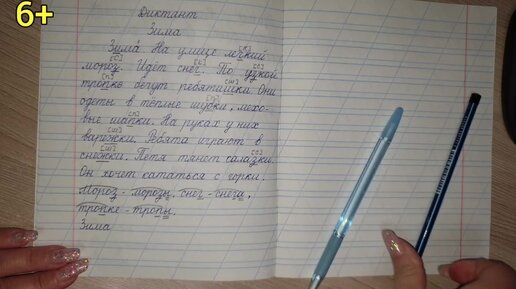 6+
Диктант.
Зима
Зима. На улице лёгкий
[с] [х]
мороз. Идёт снег. По узкой
[к] [с]
тропке бегут ребятишки. Они
[п]
одеты в тёплые шубки, мехо-
[п]
вые шапки. На руках у них
[п]
варежки. Ребята играют в
[ш]
снежки. Петя тянет салазки.
[ш] [с]
Он хочет кататься с горки.
Мороз - морозы, снег - снега,
тропке - тропы.
Зима